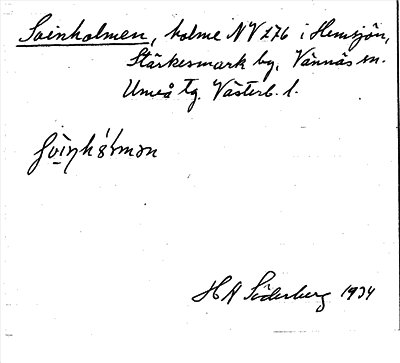 Svinholmen, holme NV 276 i Hemsjön,
Stärkesmark by, Vännäs sn.
Umeå tg. Västerb. l.
H A Söderberg 1934